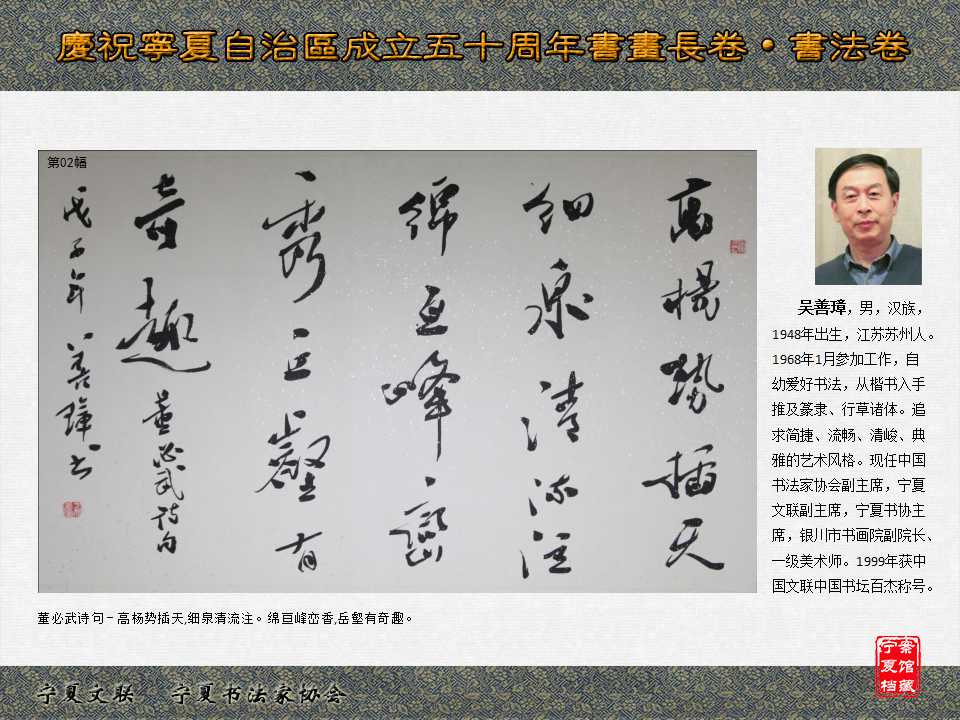 慶祝寧夏自治區成立五十周年書畫長卷·書法卷
第02幅
高楊勢插天
细泉清流注
綿亘峰巒
秀丘壑有
奇趣 董必武诗句
戊子年 善璋书
吴善璋，男，汉族，
1948年出生，江苏苏州人。
1968年1月参加工作，自
幼爱好书法，从楷书入手
推及篆隶、行草诸体。追
求简捷、流畅、清峻、典
雅的艺术风格。现任中国
书法家协会副主席，宁夏
文联副主席，宁夏书协主
席，银川市书画院副院长、
一级美术师。1999年获中
国文联中国书坛百杰称号。
董必武诗句－高杨势插天,细泉清流注。绵亘峰峦香,岳壑有奇趣。
宁夏文联 宁夏书法家协会
宁夏档案馆藏